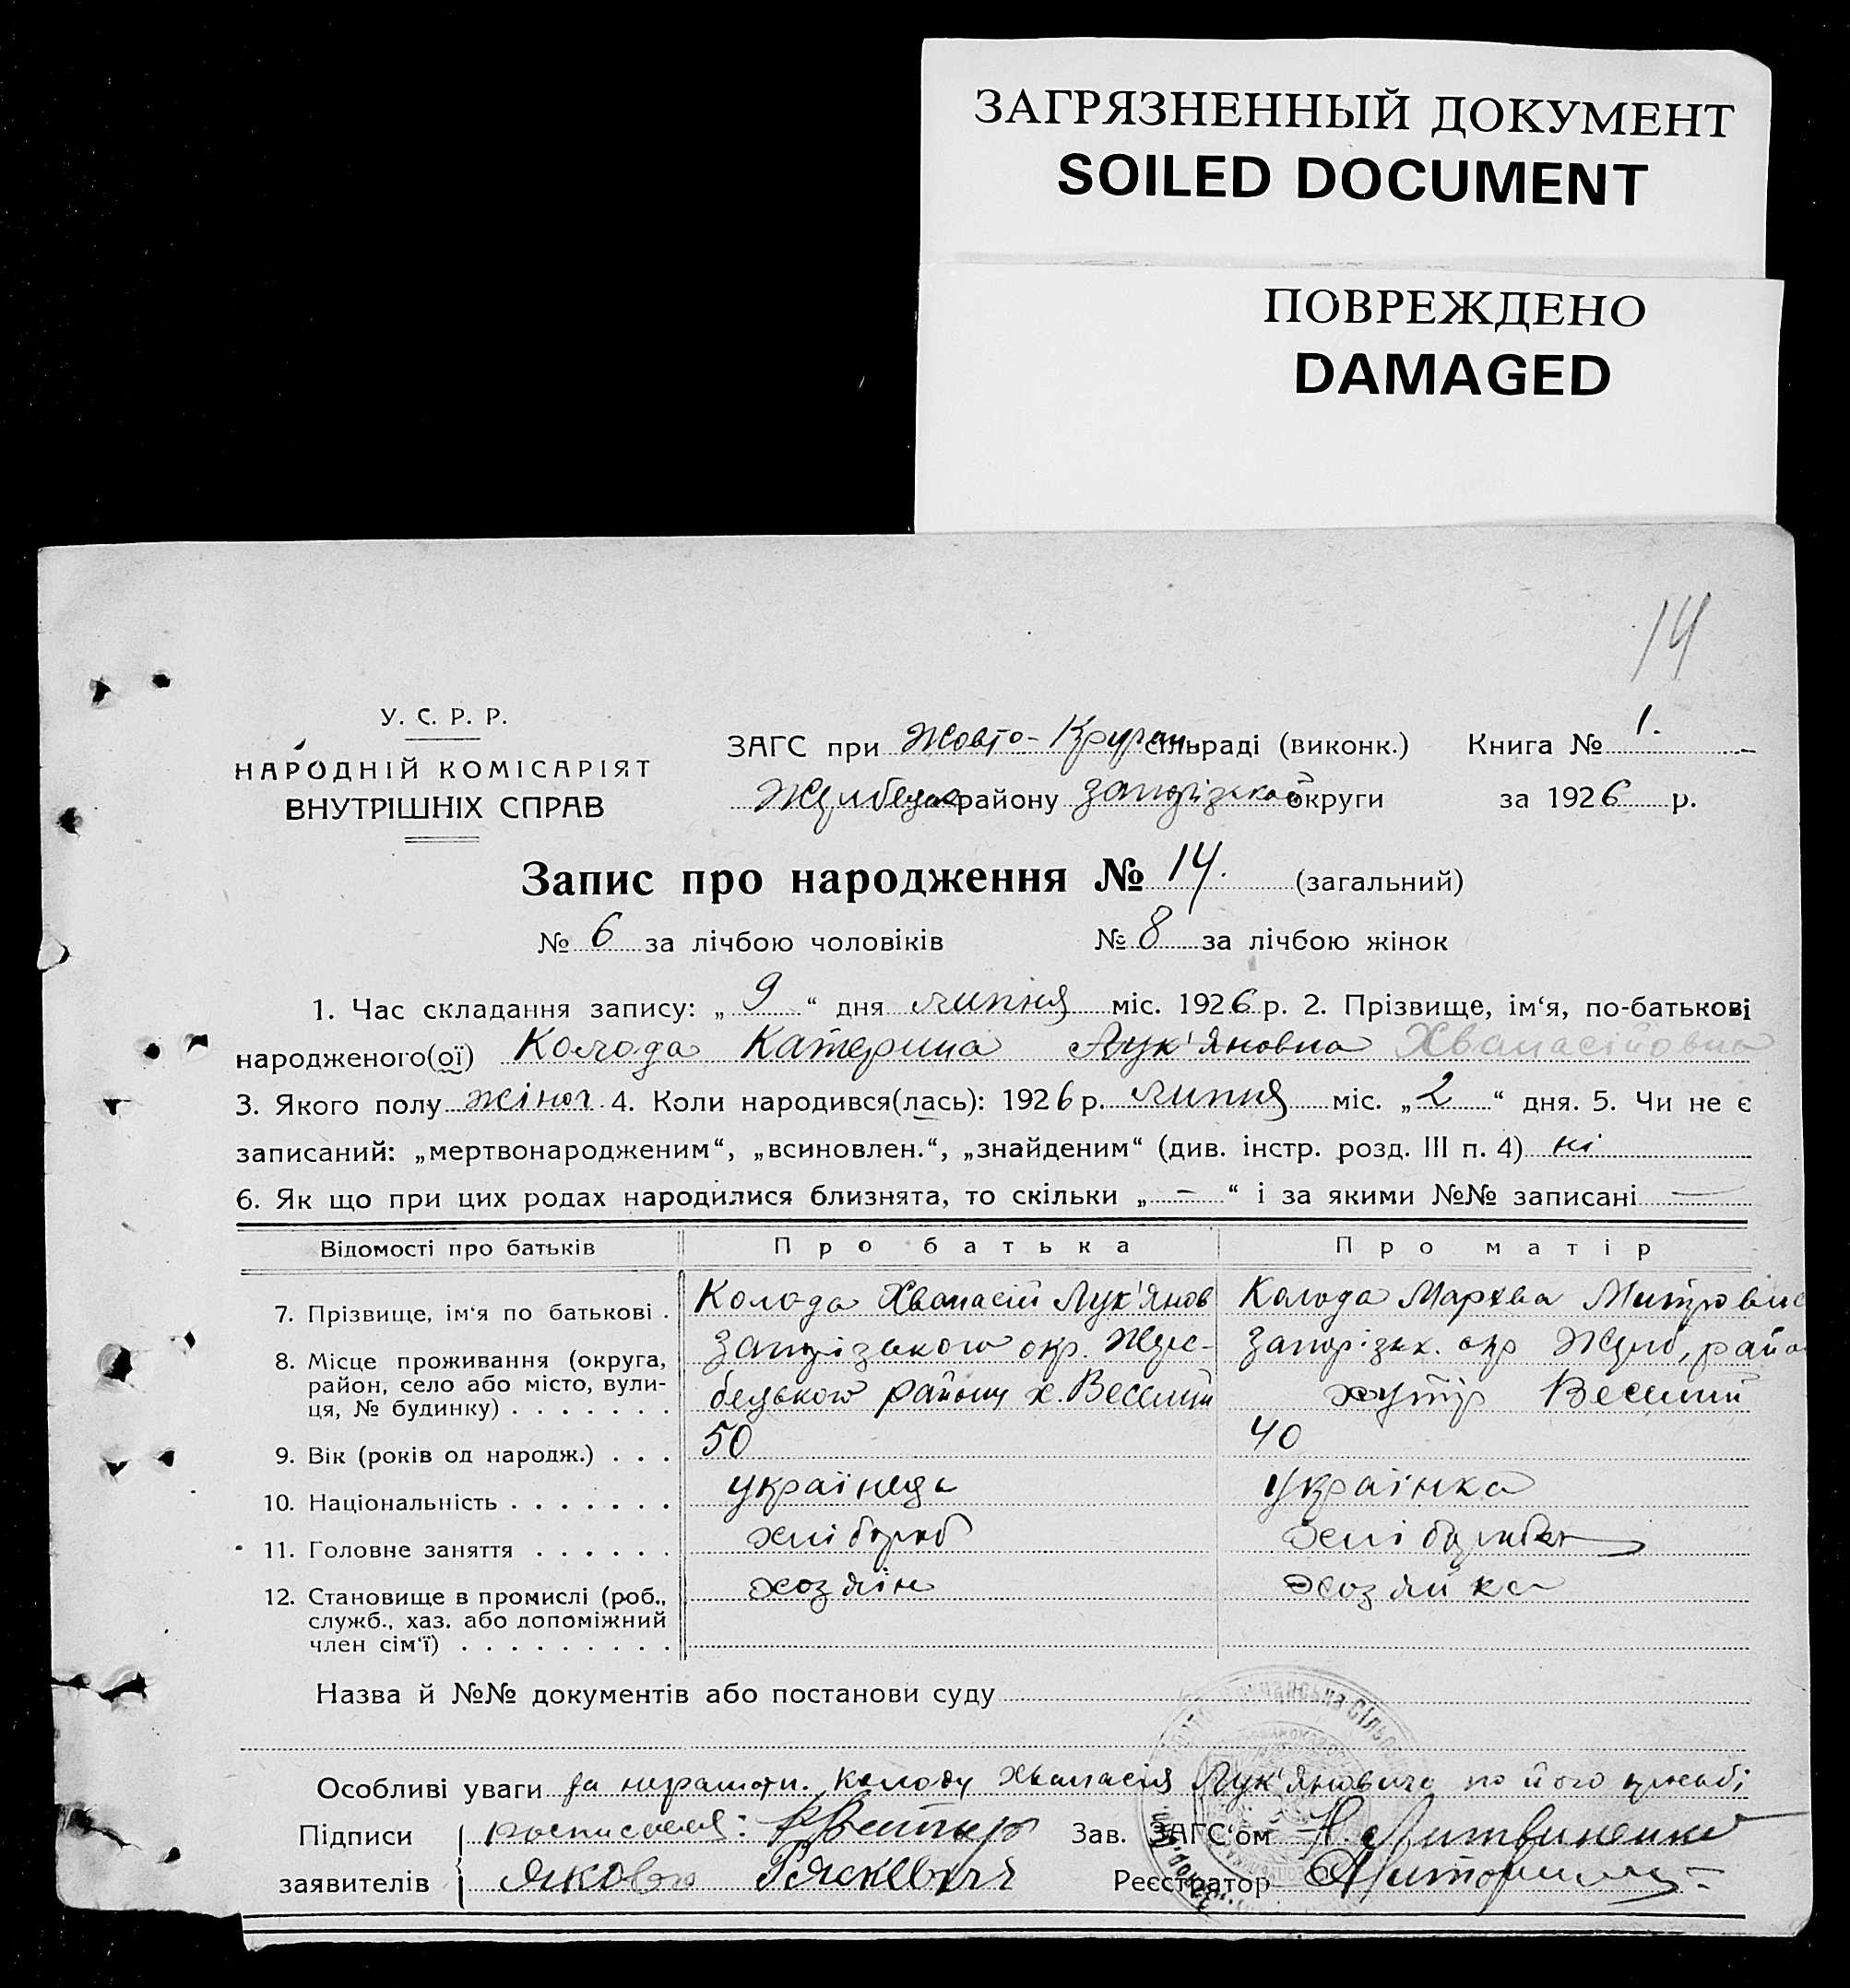 ЗАГРЯЗНЕННЫЙ ДОКУМЕНТ
SOILED DOCUMENT
ПОВРЕЖДЕНО
DAMAGED
14
У. С. Р. Р.
НАРОДНІЙ КОМІСАРІЯТ
ВНУТРІШНІХ СПРАВ
ЗАГС при Жовто-Круган. сільраді (виконк.) Книга № 1.
району Запорізької округи за 1926 р.
Запис про народження № 14. (загальний)
№ 6 за лічбою чоловіків № 8 за лічбою жінок
1. Час складання запису: „ 9 “ дня липня міс. 1926 р. 2. Прізвище, ім‘я, по-батькові
народженого(ої) Колода Катерина Лук'яновна Хванасійовна
3. Якого полу жіноч. 4. Коли народився(лась): 1926 р. липня міс. „ 2 “ дня. 5. Чи не є
записаний: „мертвонародженим“, „всиновлен.“, „знайденим“ (див. інстр. розд. III п. 4) ні
6. Як що при цих родах народилися близнята, то скільки „ - “ і за якими №№ записані —
Відомості про батьків Про батька Про матір
7. Прізвище, ім‘я по батькові . Колода Хванасій Лук'янов Колода Мархва Митровна
8. Місце проживання (округа, Запорізького окр. Жере- Запорізьк. окр Жереб, район
район, село або місто, вули- бецького району х. Веселий хутір Веселий
ця, № будинку) . . . . . . .
9. Вік (років од народж.) . . . 50 40
10. Національність . . . . . . . українець українка
11. Головне заняття . . . . . . хлібороб хліборобка
12. Становище в промислі (роб., хозяїн хозяйка
служб., хаз. або допоміжний
член сім‘ї) . . . . . . . . .
Назва й №№ документів або постанови суду
Особливі уваги За неграмотн. Колоду Хванасія Лук'яновича по його прозьбі
Підписи росписался: Зав. ЗАГС‘ом Н. Литвиненко
заявителів Яков Реєстратор